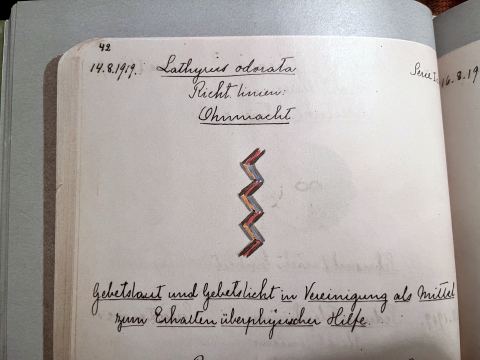 42
14.8.1919. Lathyrus odorata
Richt linien:
Ohnmacht
Gebetslaut und Gebetslicht in Vereinigung als Mittel
zum Erhalten überphysischer Hilfe.
16.8.19